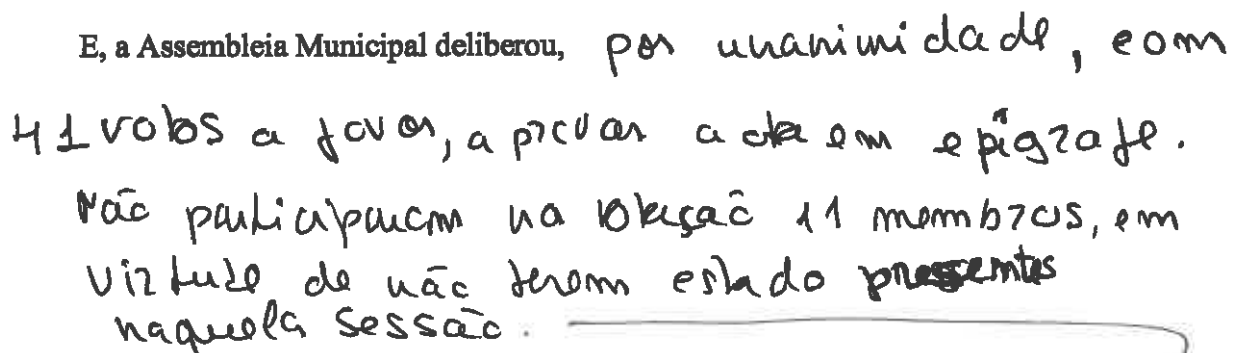 E, a Assembleia Municipal deliberou, por unanimidade, com
41 votos a favor, aprovar a acta em epígrafe.
Não participaram na votação 11 membros, em
virtude de não terem estado presentes
naquela sessão.